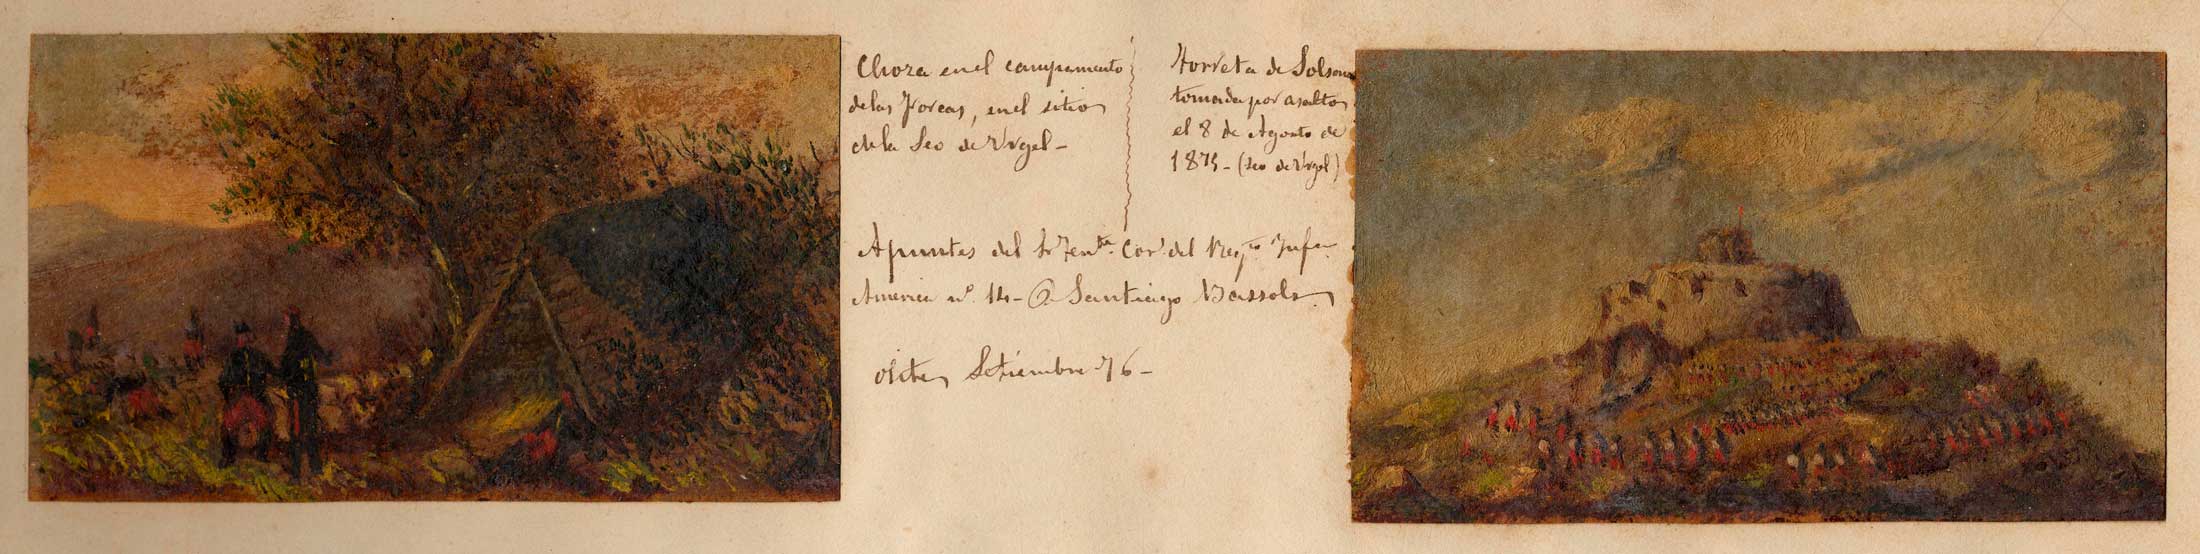 Choza en el campamento
de las Forcas, en el sitio
de la Seo de Urgel -
Torreta de Solsona
tomada por asalto
el 8 de Agosto de
1875 - (Seo de Urgel)
Apuntes del Sr Tente Corl del Regto Infa
America nº 14 - D Santiago Bassols
Setiembre 76 -